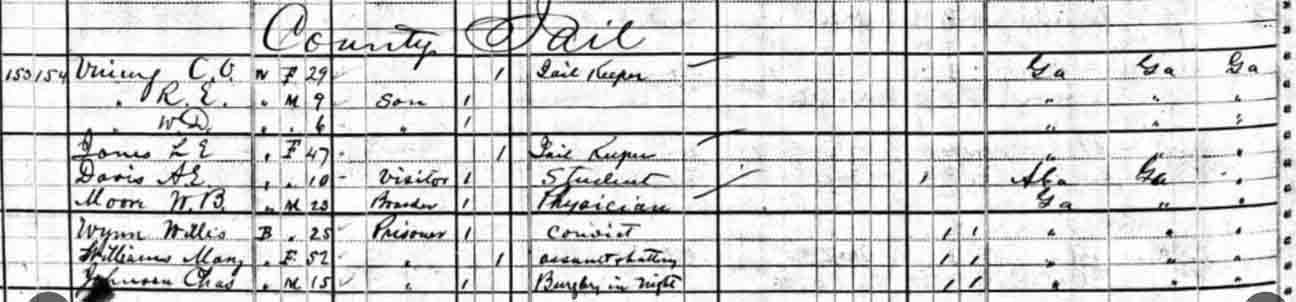 County Jail
153 154 Vining C. O. W F 29 1 Jail Keeper Ga Ga Ga
" R. E. " M 9 Son 1 " " "
" W D. " " 6 " 1 " " "
Jones L E " F 47 1 Jail Keeper " " "
Davis A E " " 10 Visitor 1 Student 1 Ala Ga "
Moon W. B. " M 23 Boarder 1 Physician Ga " "
Wynn Willis B " 25 Prisoner 1 convict 1 1 " " "
Williams Mary " F 52 " 1 assault & battery 1 1 " " "
Johnson Chas " M 15 " 1 Burglry in night 1 1 " " "